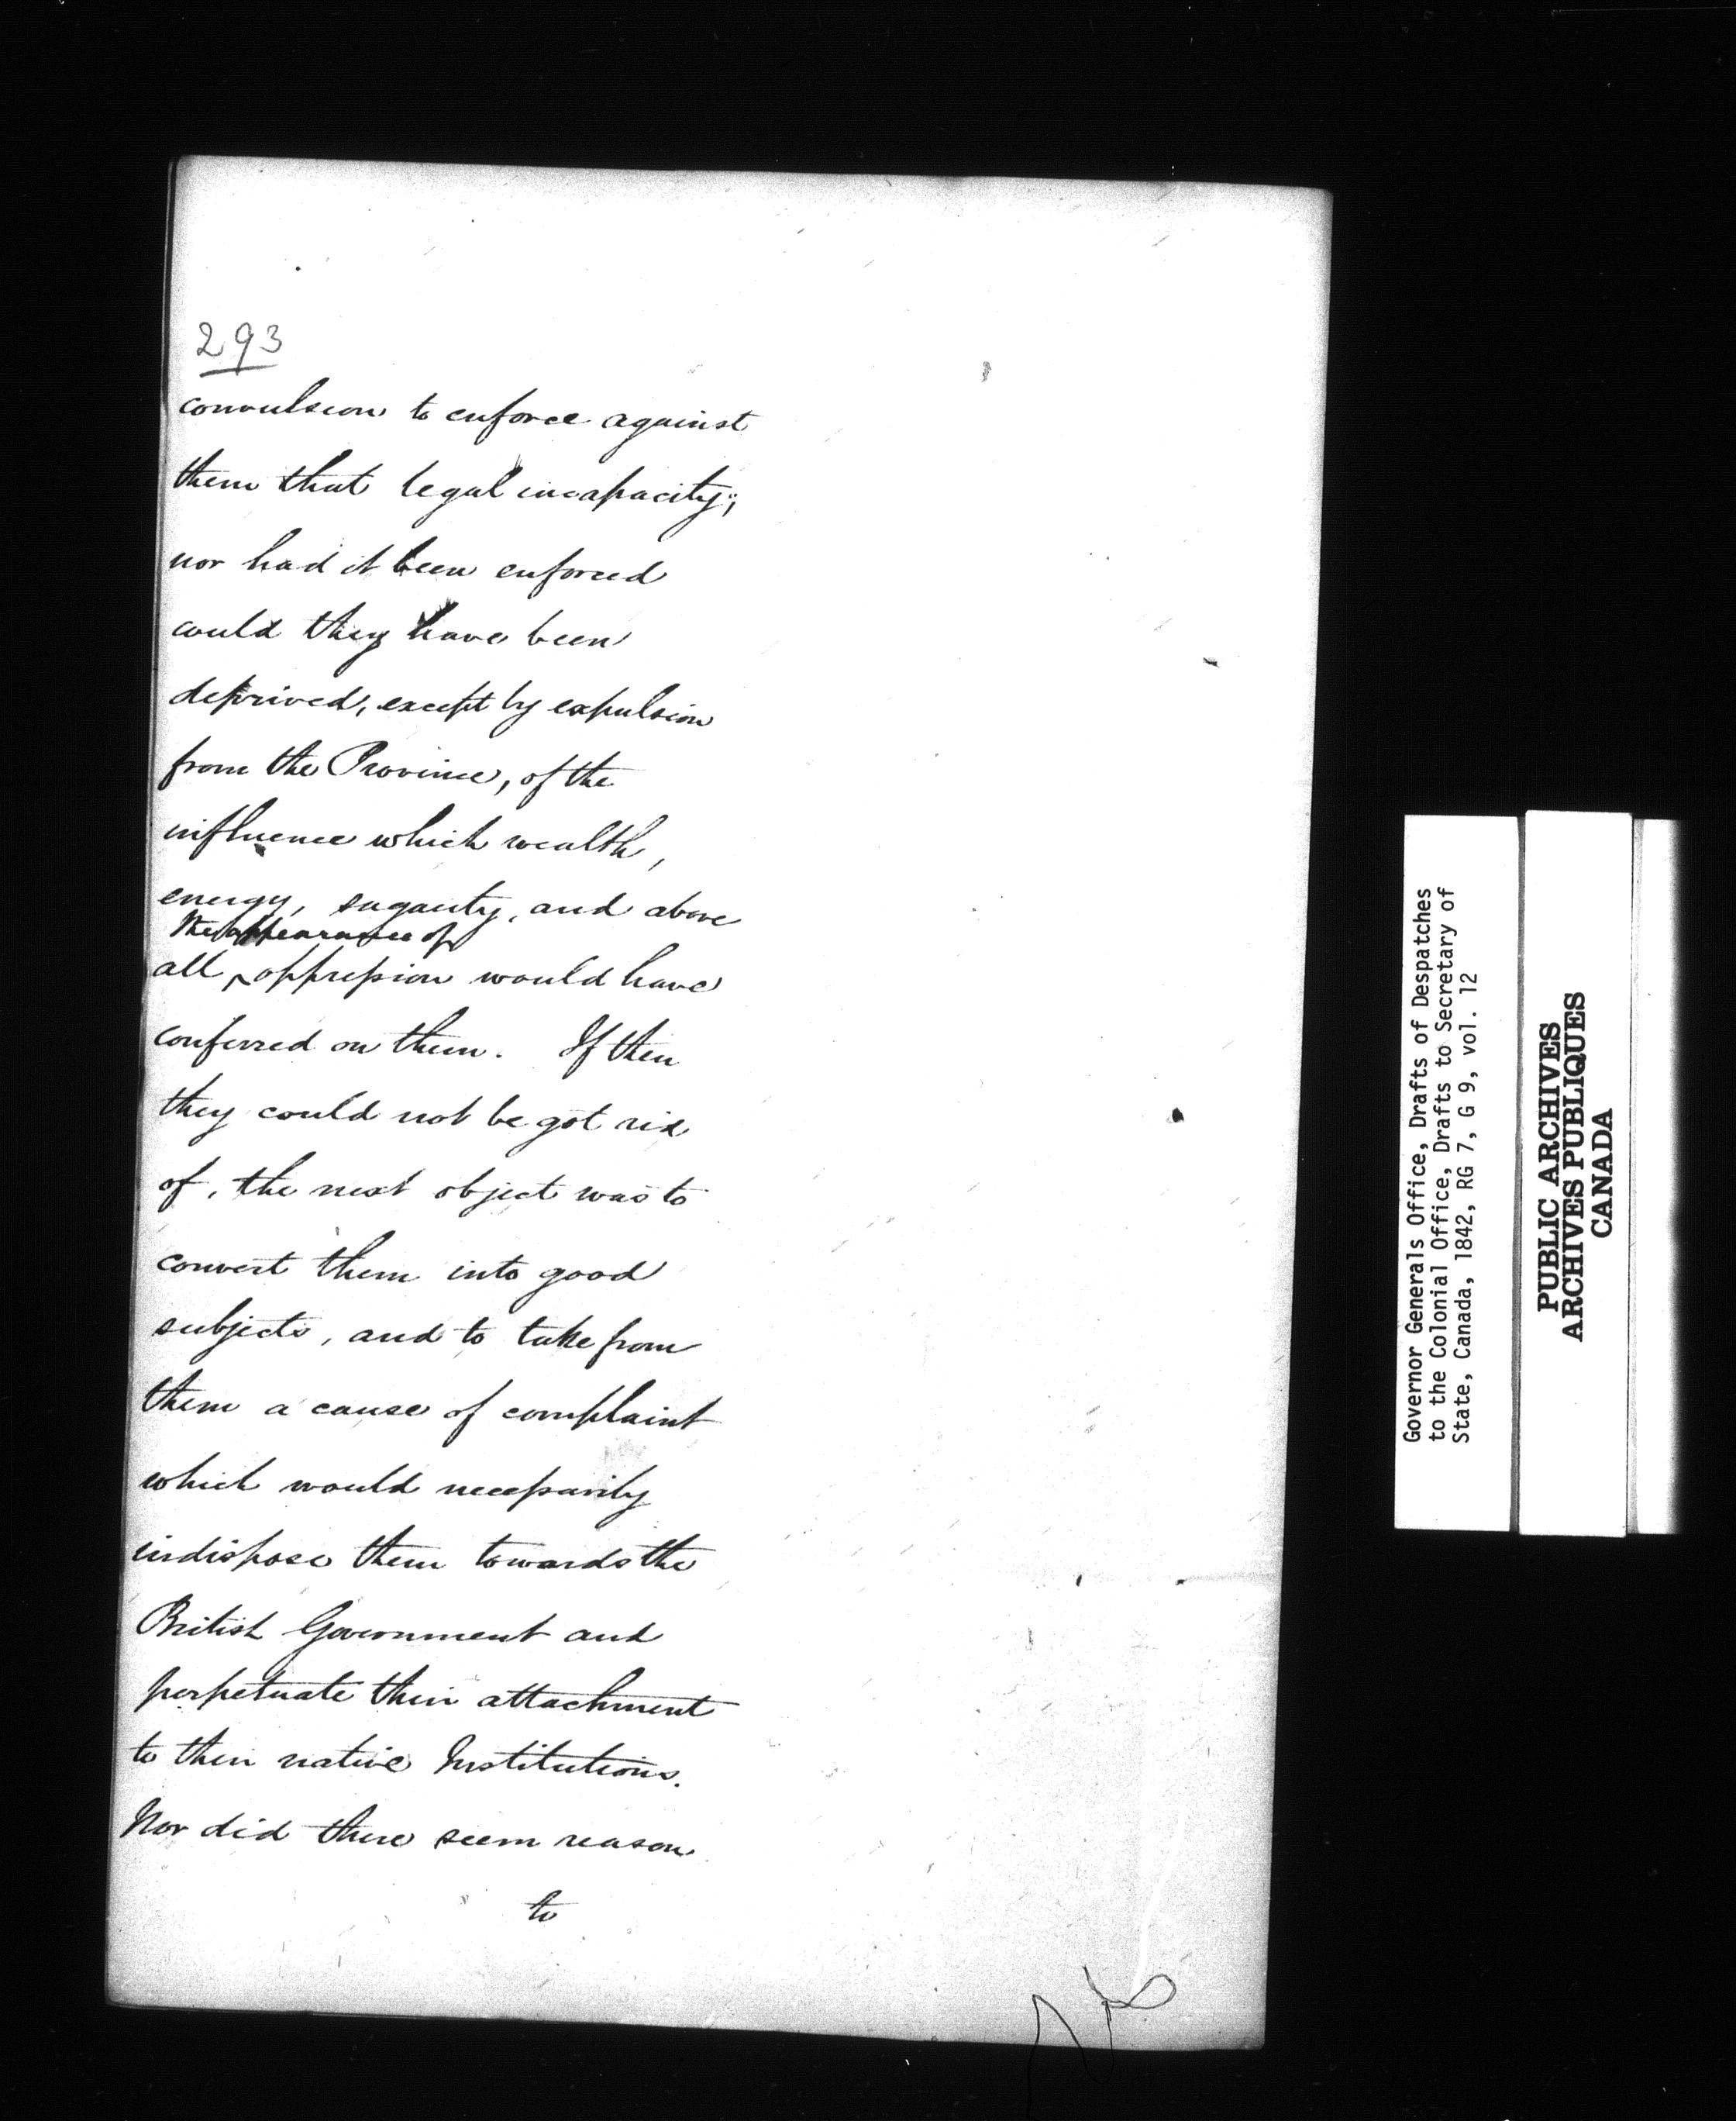 293
convulsion to enforce against
them that legal incapacity;
nor had it been enforced
could they have been
deprived, except by expulsion
from the Province, of the
influence which wealth,
energy, sagacity, and above
the appearance of
all ‸ oppression would have
conferred on them. If then
they could not be got rid
of, the next object was to
convert them into good
subjects, and to take from
them a cause of complaint
which would necessarily
indispose them towards the
British Government and
perpetuate their attachment
to their native Institutions.
Nor did there seem reason
to
Governor Generals Office, Drafts of Despatches
to the Colonial Office, Drafts to Secretary of
State, Canada, 1842, RG 7, G 9, vol. 12
PUBLIC ARCHIVES
ARCHIVES PUBLIQUES
CANADA